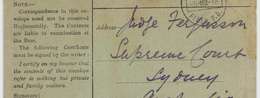 NOTE.—
Correspondence in this envelope need not be censored Regimentally. The Contents are liable to examination at the Base.
The following Certificate must be signed by the writer:—
I certify on my honour that the contents of this envelope refer to nothing but private and family matters.
Signature
Address
Judge Ferguson
Supreme Court
Sydney